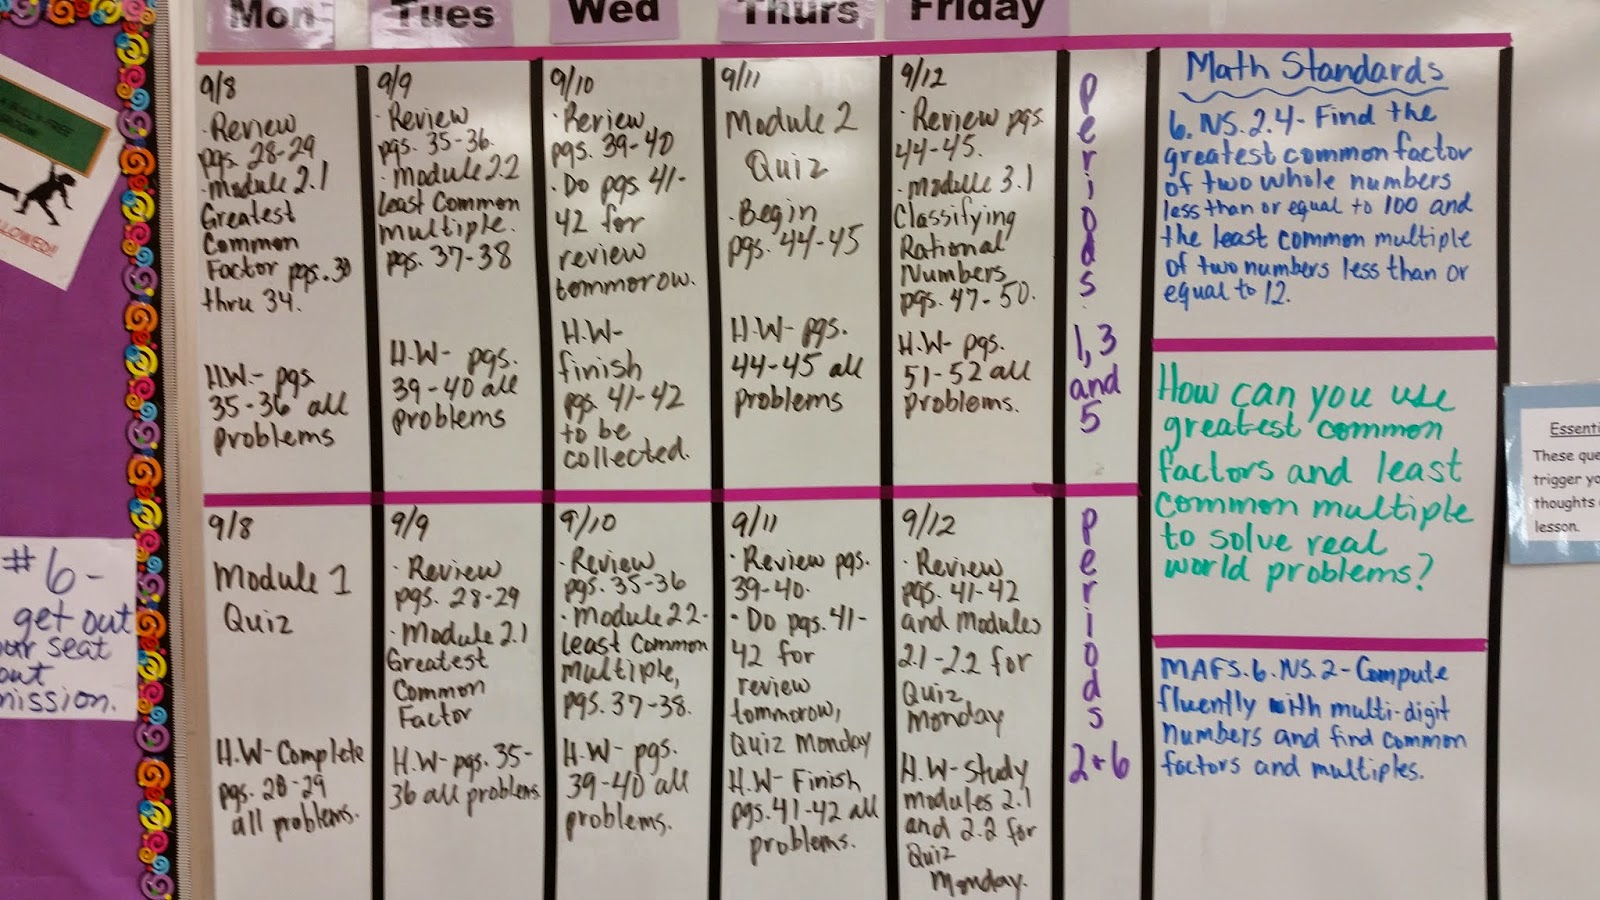 Mon Tues Wed Thurs Friday
9/8
· Review
pgs. 28-29
· Module 2.1
Greatest
Common
Factor pgs. 30
thru 34.
HW.- pgs.
35-36 all
problems
9/9
· Review
pgs. 35-36.
· Module 2.2
Least Common
Multiple.
pgs. 37-38
H.W- pgs.
39-40 all
problems
9/10
· Review
pgs. 39-40
· Do pgs. 41-
42 for
review
tommorow.
H.W-
finish
pgs. 41-42
to be
collected.
9/11
Module 2
Quiz
· Begin
pgs. 44-45
H.W- pgs.
44-45 all
problems
9/12
· Review pgs.
44-45.
· Module 3.1
Classifying
Rational
Numbers
pgs. 47-50.
H.W- pgs.
51-52 all
problems.
Periods
1,3
and
5
9/8
Module 1
Quiz
H.W-Complete
pgs. 28-29
all problems.
9/9
· Review
pgs. 28-29
· Module 2.1
Greatest
Common
Factor
H.W- pgs. 35-
36 all problems.
9/10
· Review
pgs. 35-36
· Module 2.2-
Least Common
Multiple,
pgs. 37-38.
H.W- pgs.
39-40 all
problems.
9/11
· Review pgs.
39-40.
· Do pgs. 41-
42 for
review
tommorow,
Quiz Monday
H.W- Finish
pgs. 41-42 all
problems.
9/12
· Review
pgs. 41-42
and Modules
2.1-2.2 for
Quiz
Monday
H.W- Study
modules 2.1
and 2.2 for
Quiz
Monday.
Periods
2+6
Math Standards
6.NS.2.4- Find the
greatest common factor
of two whole numbers
less than or equal to 100 and
the least common multiple
of two numbers less than or
equal to 12.
How can you use
greatest common
factors and least
common multiple
to solve real
world problems?
MAFS.6.NS.2-Compute
fluently with multi-digit
numbers and find common
factors and multiples.
#6-
get out
seat
These
trigger
thoughts
lesson.